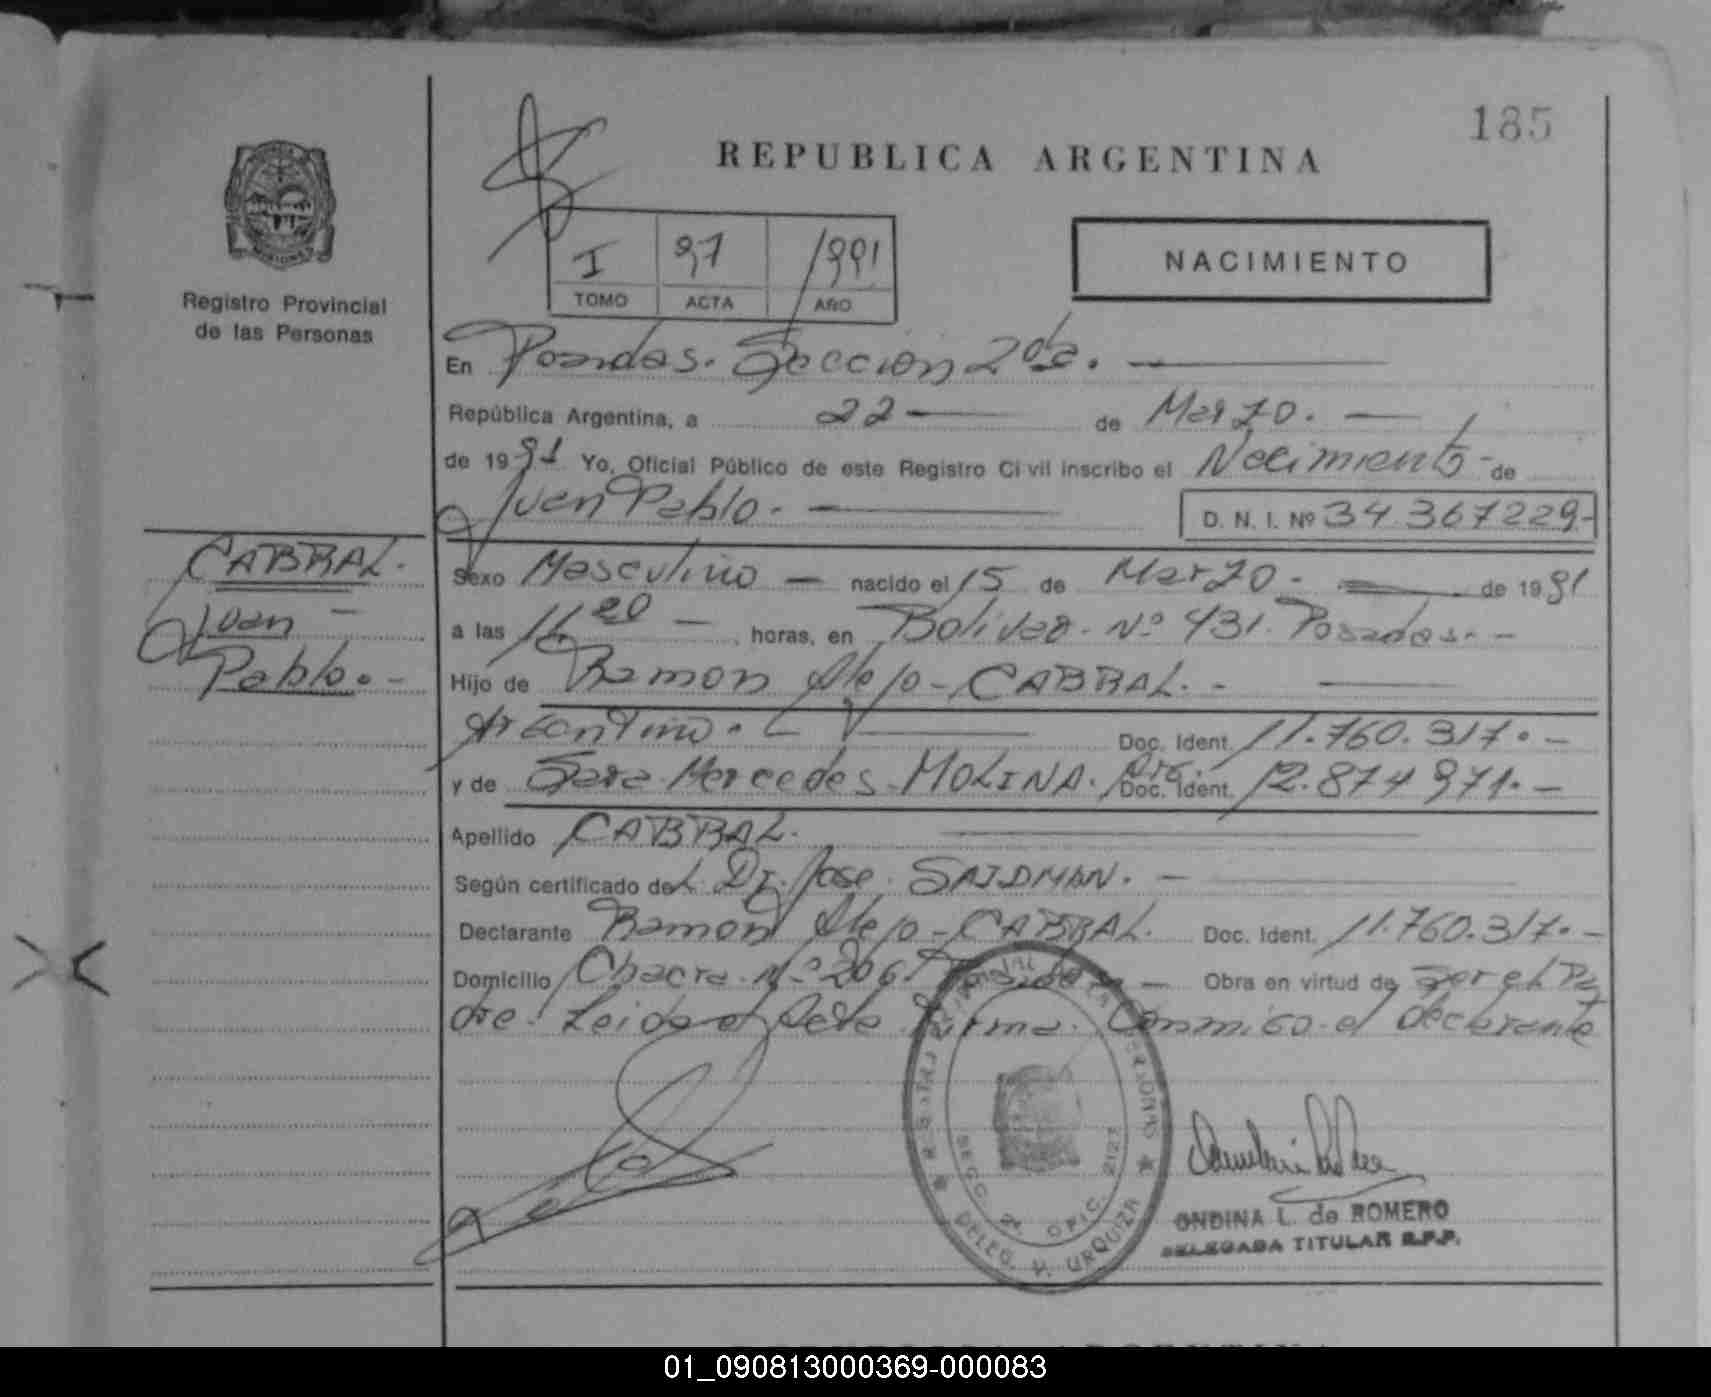 185
REPUBLICA ARGENTINA
Registro Provincial
de las Personas
I 97 1991
TOMO ACTA AÑO
NACIMIENTO
En Posadas. Sección 2da.
República Argentina, a 22 de Marzo.
de 1991 Yo, Oficial Público de este Registro Civil inscribo el Nacimiento de
Juan Pablo. D. N. I. Nº 34.367229-
CABRAL.
Juan
Pablo.-
Sexo Masculino nacido el 15 de Marzo. de 1991
a las 11 20 horas, en Bolivar. Nº 431. Posadas.-
Hijo de Ramon Alejo - CABRAL.-
Argentino. Doc. Ident. 11.760.317.-
y de Sara Mercedes MOLINA. Arg. Doc. Ident. 12.874971.-
Apellido CABRAL.
Según certificado del Dr. Jose SAIDMAN.
Declarante Ramon Alejo - CABRAL. Doc. Ident. 11.760.317.-
Domicilio Chacra Nº 206. Posadas Obra en virtud de ser el Pa
dre. Leida el Acta Firma Conmigo el declarante
REGISTRO PROVINCIAL DE LAS PERSONAS
SECC. 2ª OFIC. 2127
DELEG. V. URQUIZA
ONDINA L. de ROMERO
DELEGADA TITULAR R.P.P.
01_090813000369-000083